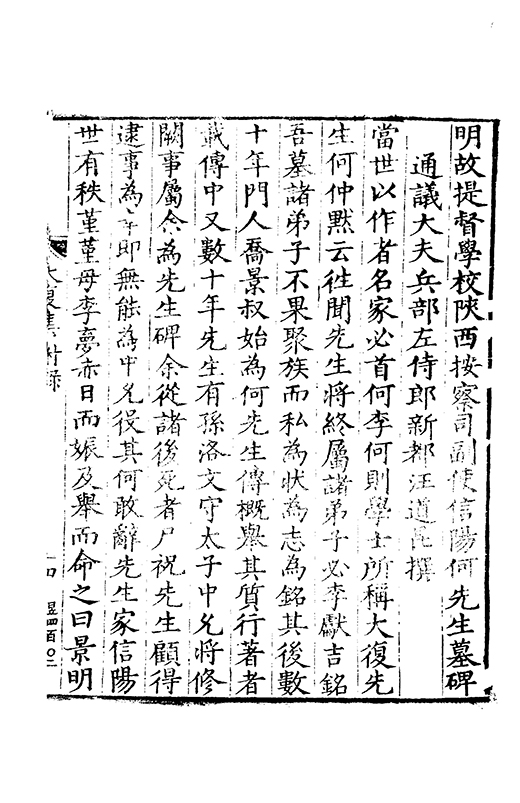 明故提督學校陝西按察司副使信陽何先生墓碑
通議大夫兵部左侍郎新都汪道昆撰
當世以作者名家必首何李何則學士所稱大復先
生何仲默云徃聞先生將終屬諸弟子必李獻吉銘
吾墓諸弟子不果聚族而私為狀為志為銘其後數
十年門人喬景叔始為何先生傳概舉其質行著者
載傳中又數十年先生有孫洛文守太子中允將修
闕事屬余為先生碑余從諸後死者尸祝先生顧得
逮事為幸即無能為中允役其何敢辭先生家信陽
世有秩堇堇母李夢赤日而娠及舉而命之曰景明
大復集附錄
一四
四百〇二